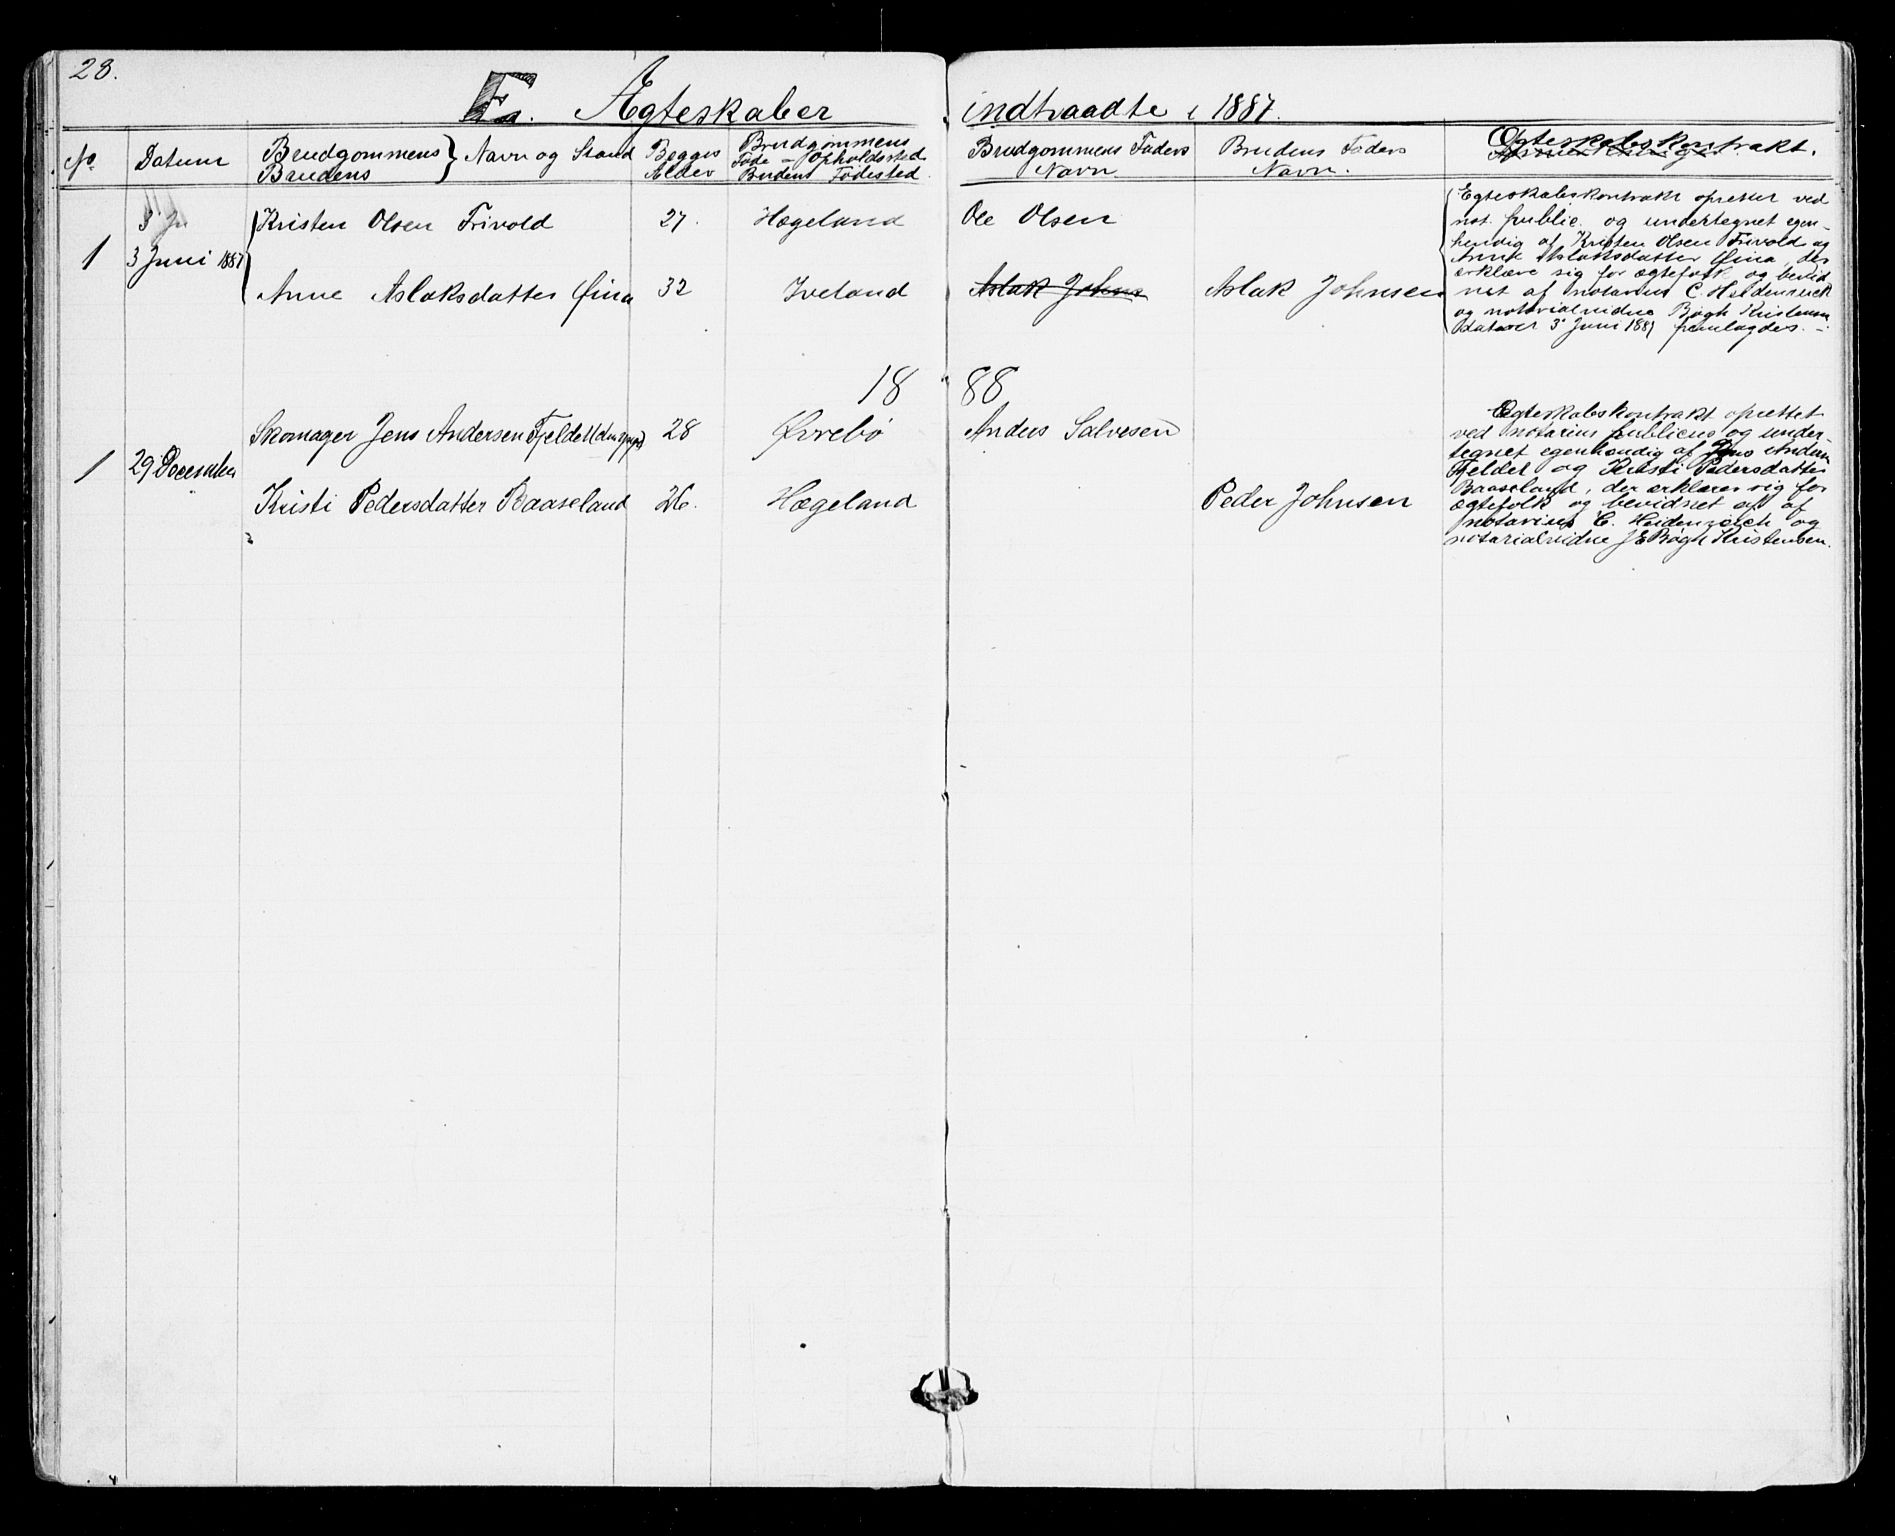 28.
E. Ægteskaber indtraadte i 1887.
No. Datum Brudgommens Brudens } Navn og Stand Begges Alder Brudgommens Føde - Opholdssted Brudens Fødested. Brudgommens Faders Navn. Brudens Faders Navn. Ægteskabskontrakt.
3 Ju
Kristen Olsen Frivold 27. Hægeland Ole Olsen
1 3 Juni 1887
Anne Aslaksdatter Øina 32 Iveland Aslak Johns Aslak Johnsen
Egteskabskontrakt oprettet ved
not. public. og undertegnet egen-
hendig af Kristen Olsen Frivold og
Anne Aslaksdatter Øina, der
erklære sig for ægtefolk og bevid
net af notarius C. Heidenreich
og notarialvidne Bøgh Kristensen
dateret 3 Juni 1887 fremlagdes. -
18 88
Skomager Jens Andersen Fjeldet 28 Øvrebø Anders Salvesen
1 29 December
Kristi Pedersdatter Baaseland 26. Hægeland Peder Johnsen
Egteskabskontrakt oprettet
ved notarius publicus og under-
tegnet egenhændig af Jens Andersen
Fjeldet og Kristi Pedersdatter
Baaseland, der erklærer sig for
ægtefolk og bevidnet af af
notarius C. Heidenreich og
notarialvidne J E Bøgh Kristensen.